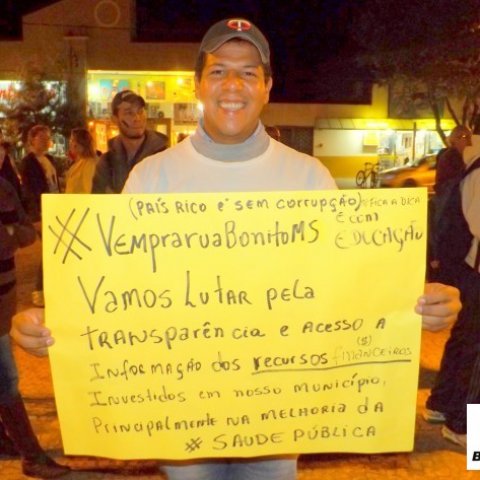 (PAÍS RICO É SEM CORRUPÇÃO) #FICA A DICA
E COM
#VEMPRARUABONITOMS
EDUCAÇÃO
VAMOS LUTAR PELA
TRANSPARÊNCIA E ACESSO A
INFORMAÇÃO DOS RECURSOS FINANCEIROS ($)
INVESTIDOS EM NOSSO MUNICÍPIO,
PRINCIPALMENTE NA MELHORIA DA
# SAUDE PÚBLICA